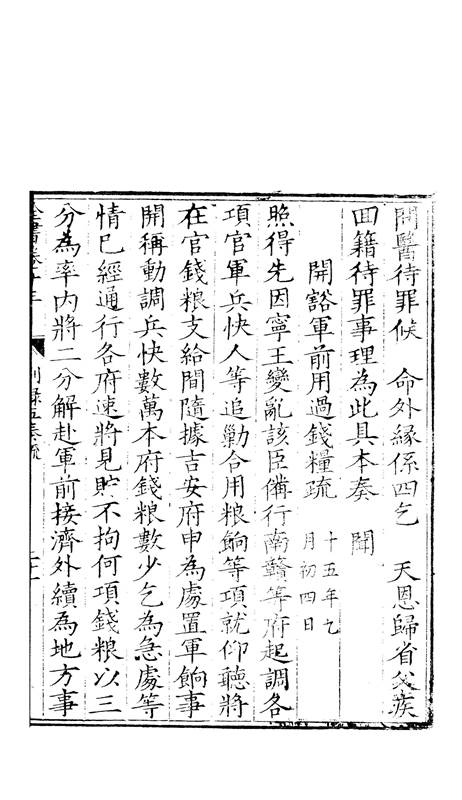 問醫待罪候　命外緣係四乞　天恩歸省父疾
回籍待罪事理為此具本奏　聞
開豁軍前用過錢糧疏　十五年九月初四日
照得先因寧王變亂該臣備行南贛等府起調各
項官軍兵快人等追勦合用粮餉等項就仰聽將
在官錢粮支給間隨據吉安府申為處置軍餉事
開稱動調兵快數萬本府錢粮數少乞為急處等
情已經通行各府速將見貯不拘何項錢粮以三
分為率內將二分解赴軍前接濟外續為地方事